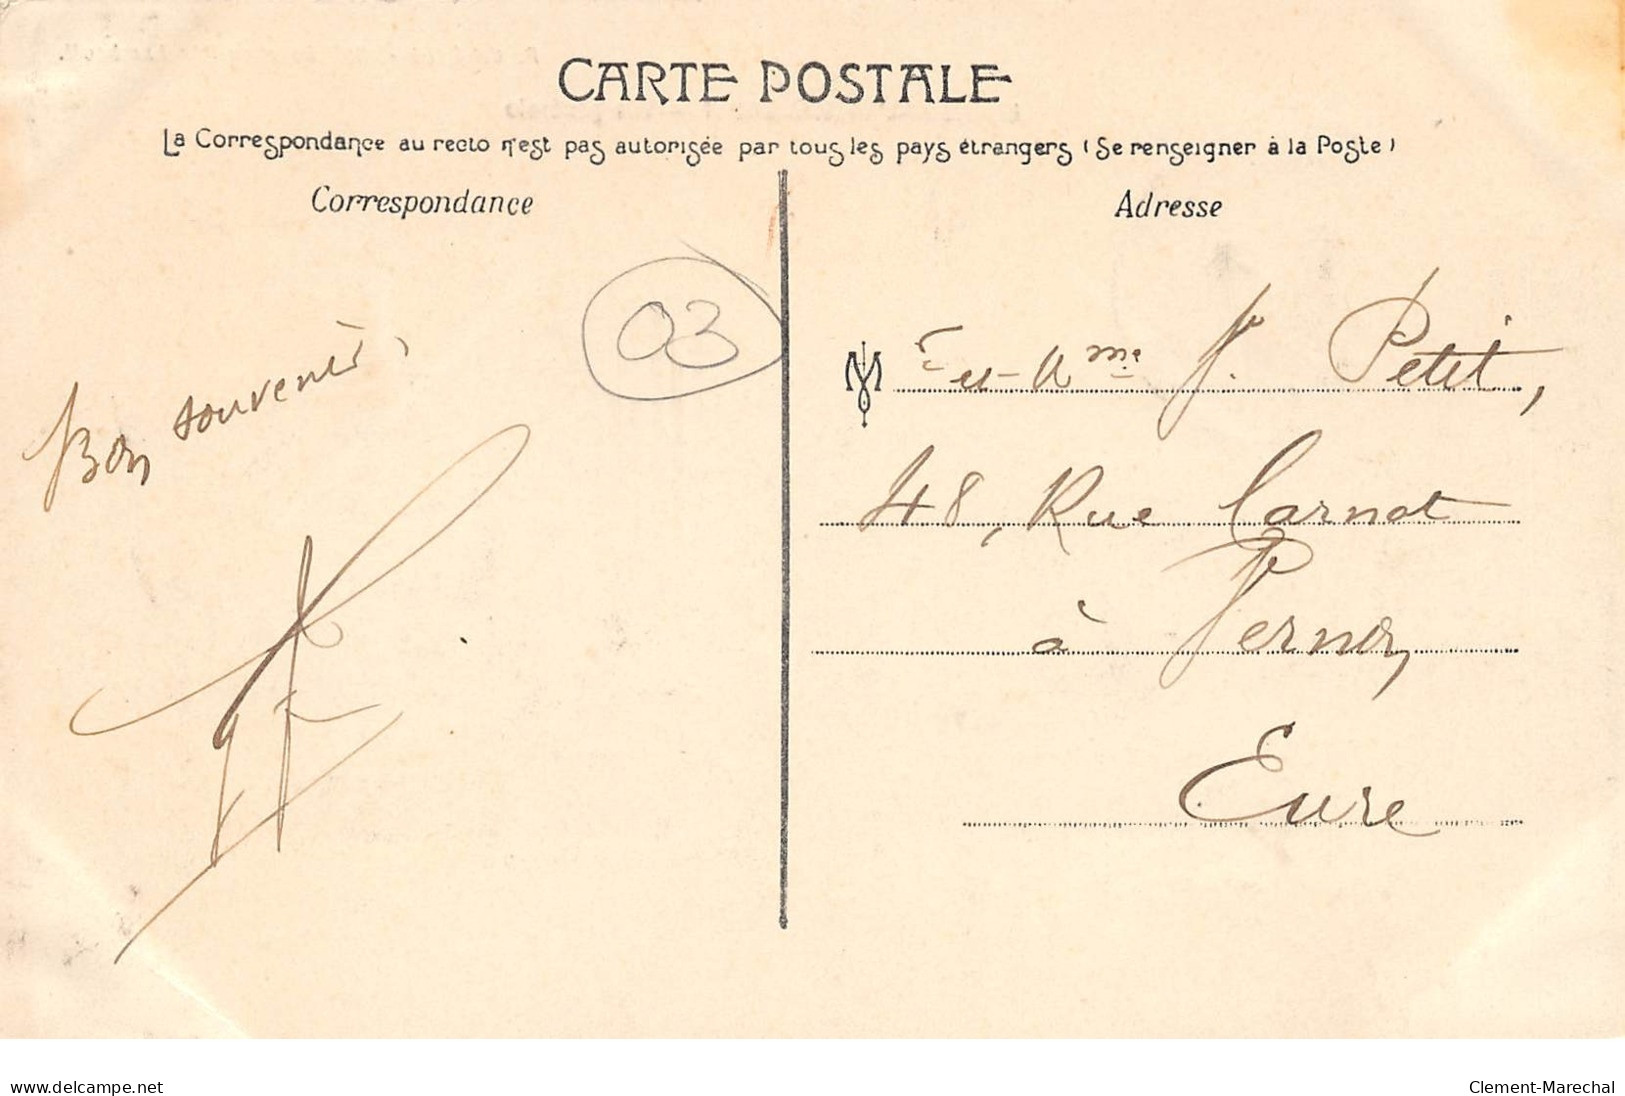 CARTE POSTALE
La Correspondance au recto n'est pas autorisée par tous les pays étrangers (Se renseigner à la Poste)
Correspondance
Adresse
03
Bon souvenir,
M r et Mme J. Petit,
48, Rue Carnot
à Vernon,
Eure
www.delcampe.net
Clement-Marechal